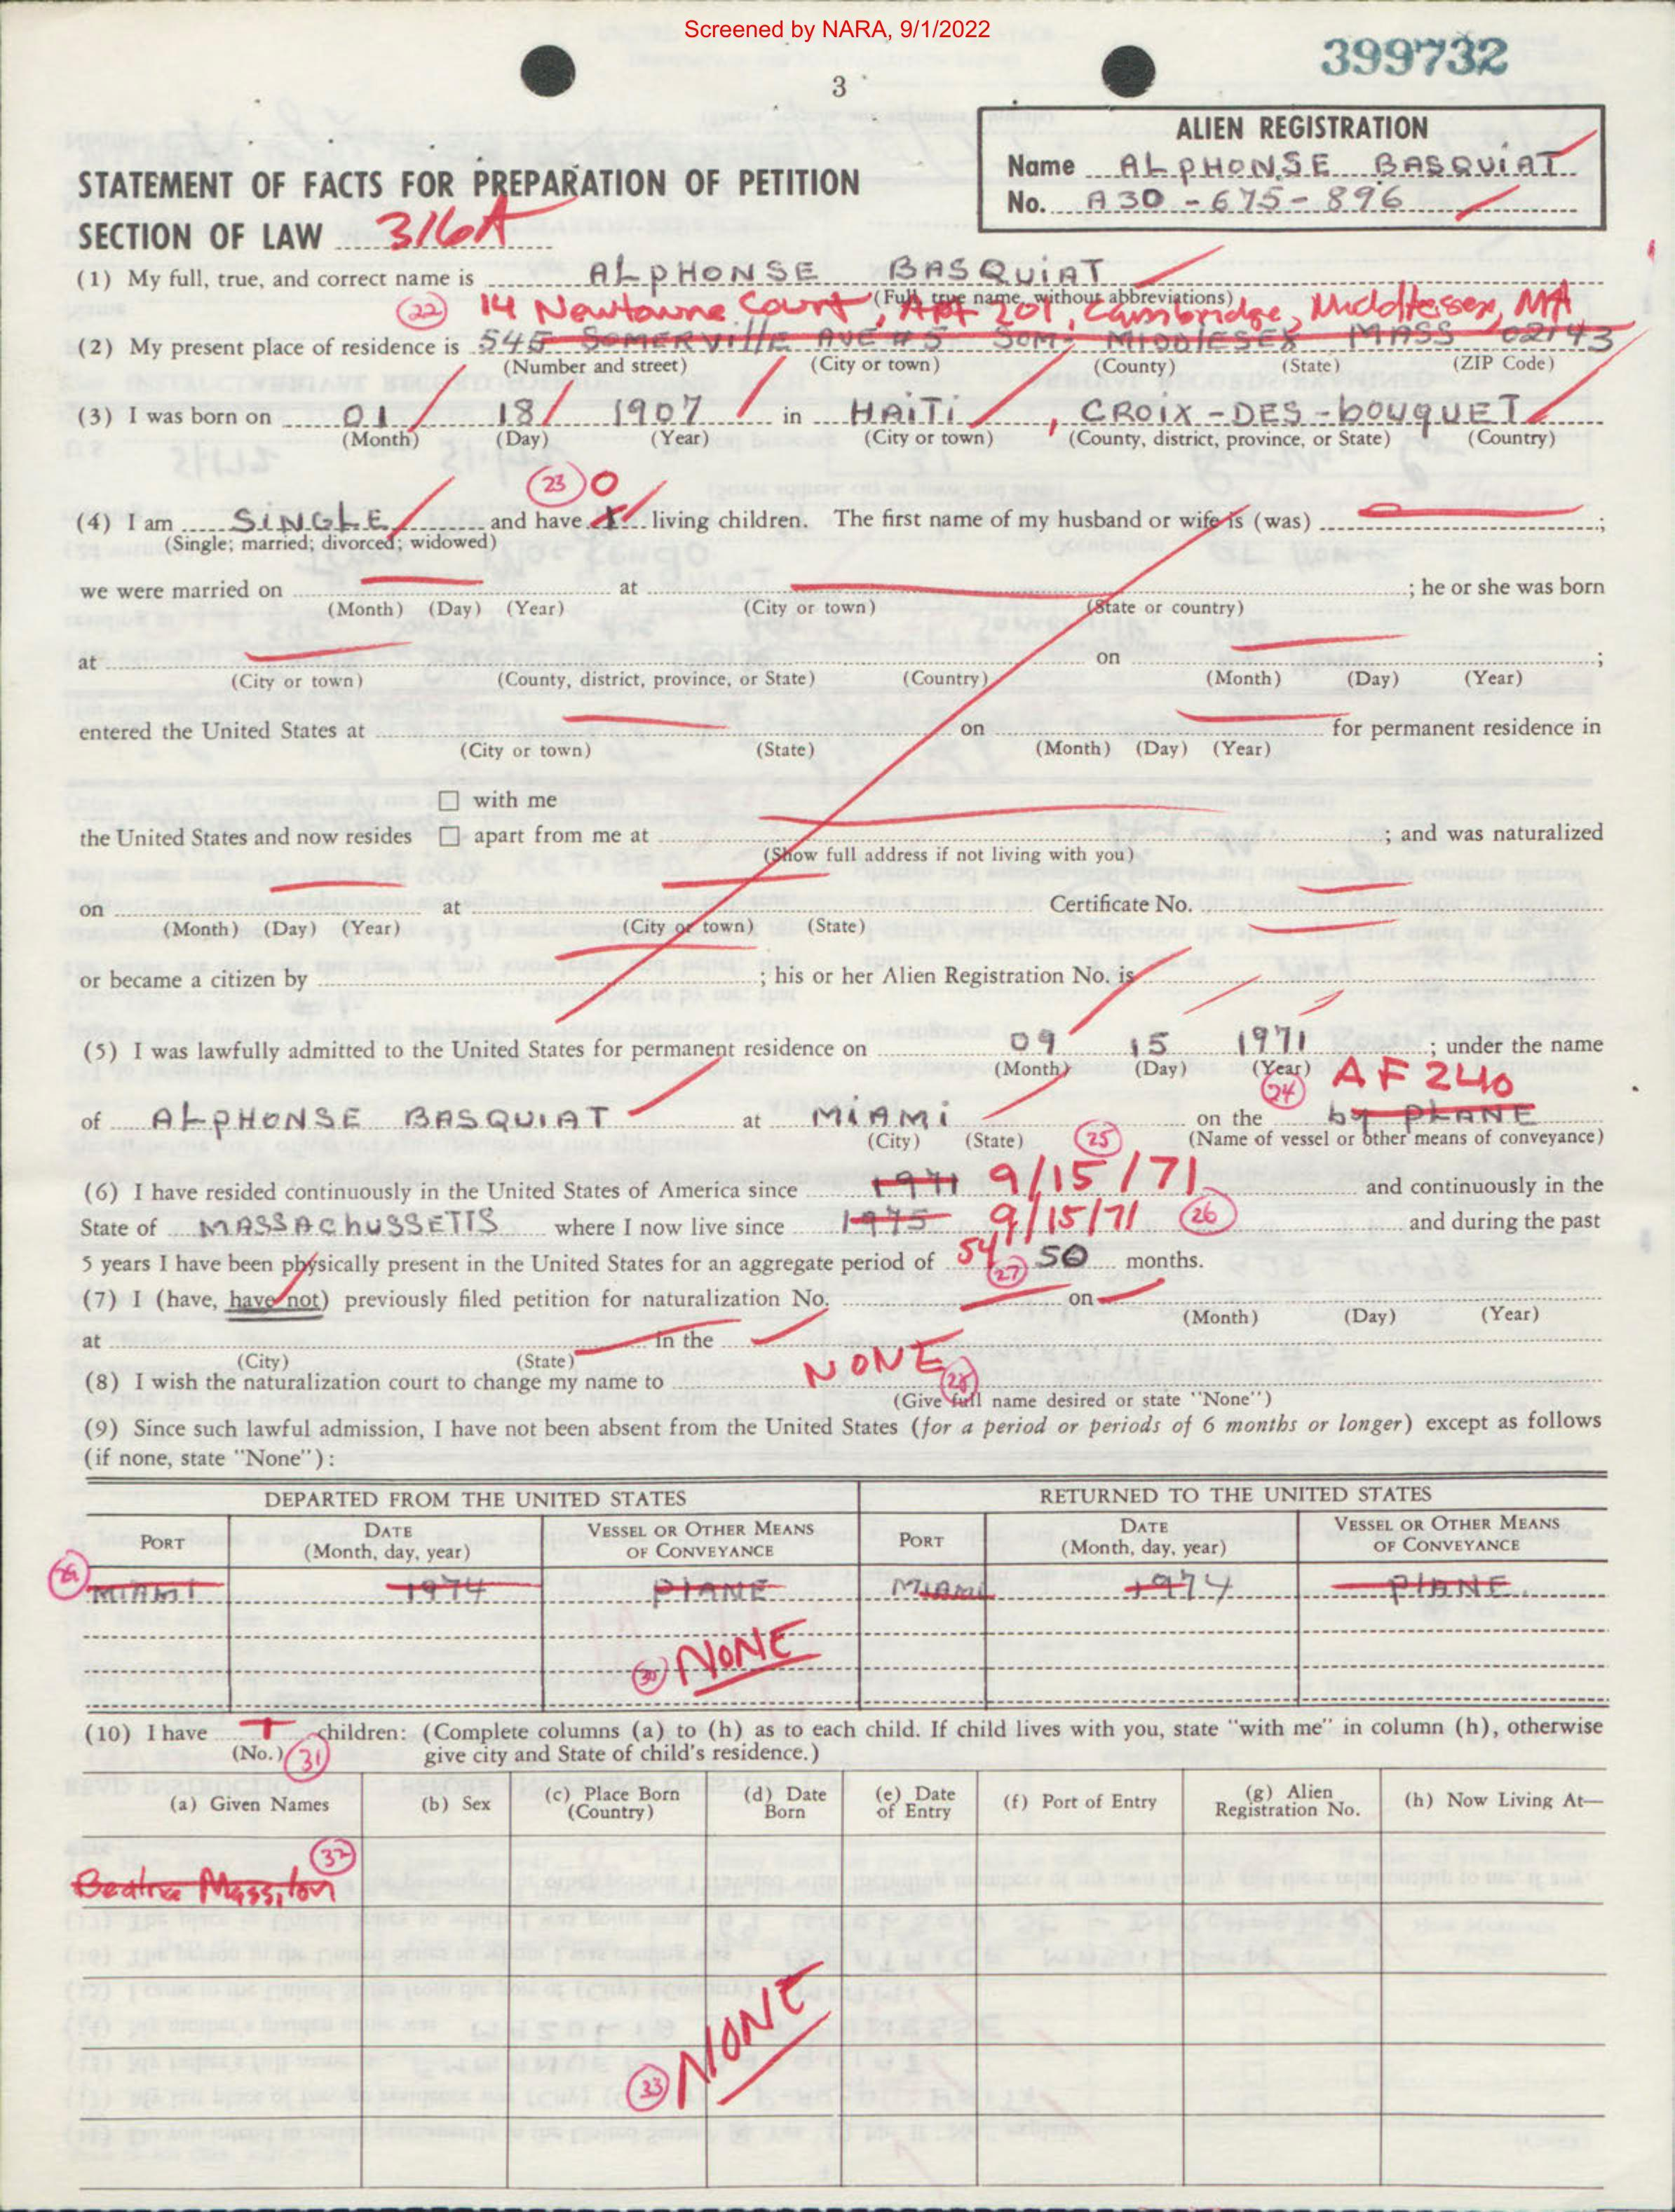 Screened by NARA, 9/1/2022
399732
3
ALIEN REGISTRATION
Name ALPHONSE BASQUIAT
No. A30-675-896
STATEMENT OF FACTS FOR PREPARATION OF PETITION
SECTION OF LAW 316A
(1) My full, true, and correct name is ALPHONSE BASQUIAT
(Full, true name, without abbreviations)
(22) 14 Newtowne Court, APT 201, Cambridge, Middlesex, MA
(2) My present place of residence is 545 SOMERVILLE AVE #5 SOM- MIDDLESEX MASS 02143
(Number and street) (City or town) (County) (State) (ZIP Code)
(3) I was born on 01 18 1907 in HAITI, CROIX-DES-BOUQUET
(Month) (Day) (Year) (City or town) (County, district, province, or State) (Country)
(23) 0
(4) I am SINGLE and have living children. The first name of my husband or wife is (was) ;
(Single; married; divorced; widowed)
we were married on at ; he or she was born
(Month) (Day) (Year) (City or town) (State or country)
at on ;
(City or town) (County, district, province, or State) (Country) (Month) (Day) (Year)
entered the United States at on for permanent residence in
(City or town) (State) (Month) (Day) (Year)
with me
the United States and now resides apart from me at ; and was naturalized
(Show full address if not living with you)
on at Certificate No.
(Month) (Day) (Year) (City or town) (State)
or became a citizen by ; his or her Alien Registration No. is
(5) I was lawfully admitted to the United States for permanent residence on 09 15 1971 ; under the name
(Month) (Day) (Year)
(24) AF 240
of ALPHONSE BASQUIAT at MIAMI on the by PLANE
(City) (State) (Name of vessel or other means of conveyance)
(25)
(6) I have resided continuously in the United States of America since 1971 9/15/71 and continuously in the
State of MASSACHUSSETTS where I now live since 1975 9/15/71 (26) and during the past
5 years I have been physically present in the United States for an aggregate period of 54 (27) 50 months.
(7) I (have, have not) previously filed petition for naturalization No. on
(Month) (Day) (Year)
at in the
(City) (State)
(8) I wish the naturalization court to change my name to NONE (28)
(Give full name desired or state "None")
(9) Since such lawful admission, I have not been absent from the United States (for a period or periods of 6 months or longer) except as follows
(if none, state "None"):
DEPARTED FROM THE UNITED STATES RETURNED TO THE UNITED STATES
PORT DATE (Month, day, year) VESSEL OR OTHER MEANS OF CONVEYANCE PORT DATE (Month, day, year) VESSEL OR OTHER MEANS OF CONVEYANCE
(29) MIAMI 1974 PLANE MIAMI 1974 PLANE
(30) NONE
(10) I have 1 children: (Complete columns (a) to (h) as to each child. If child lives with you, state "with me" in column (h), otherwise
(No.) (31) give city and State of child's residence.)
(a) Given Names (b) Sex (c) Place Born (Country) (d) Date Born (e) Date of Entry (f) Port of Entry (g) Alien Registration No. (h) Now Living At—
(32)
Beatrice Massillon
(33) NONE